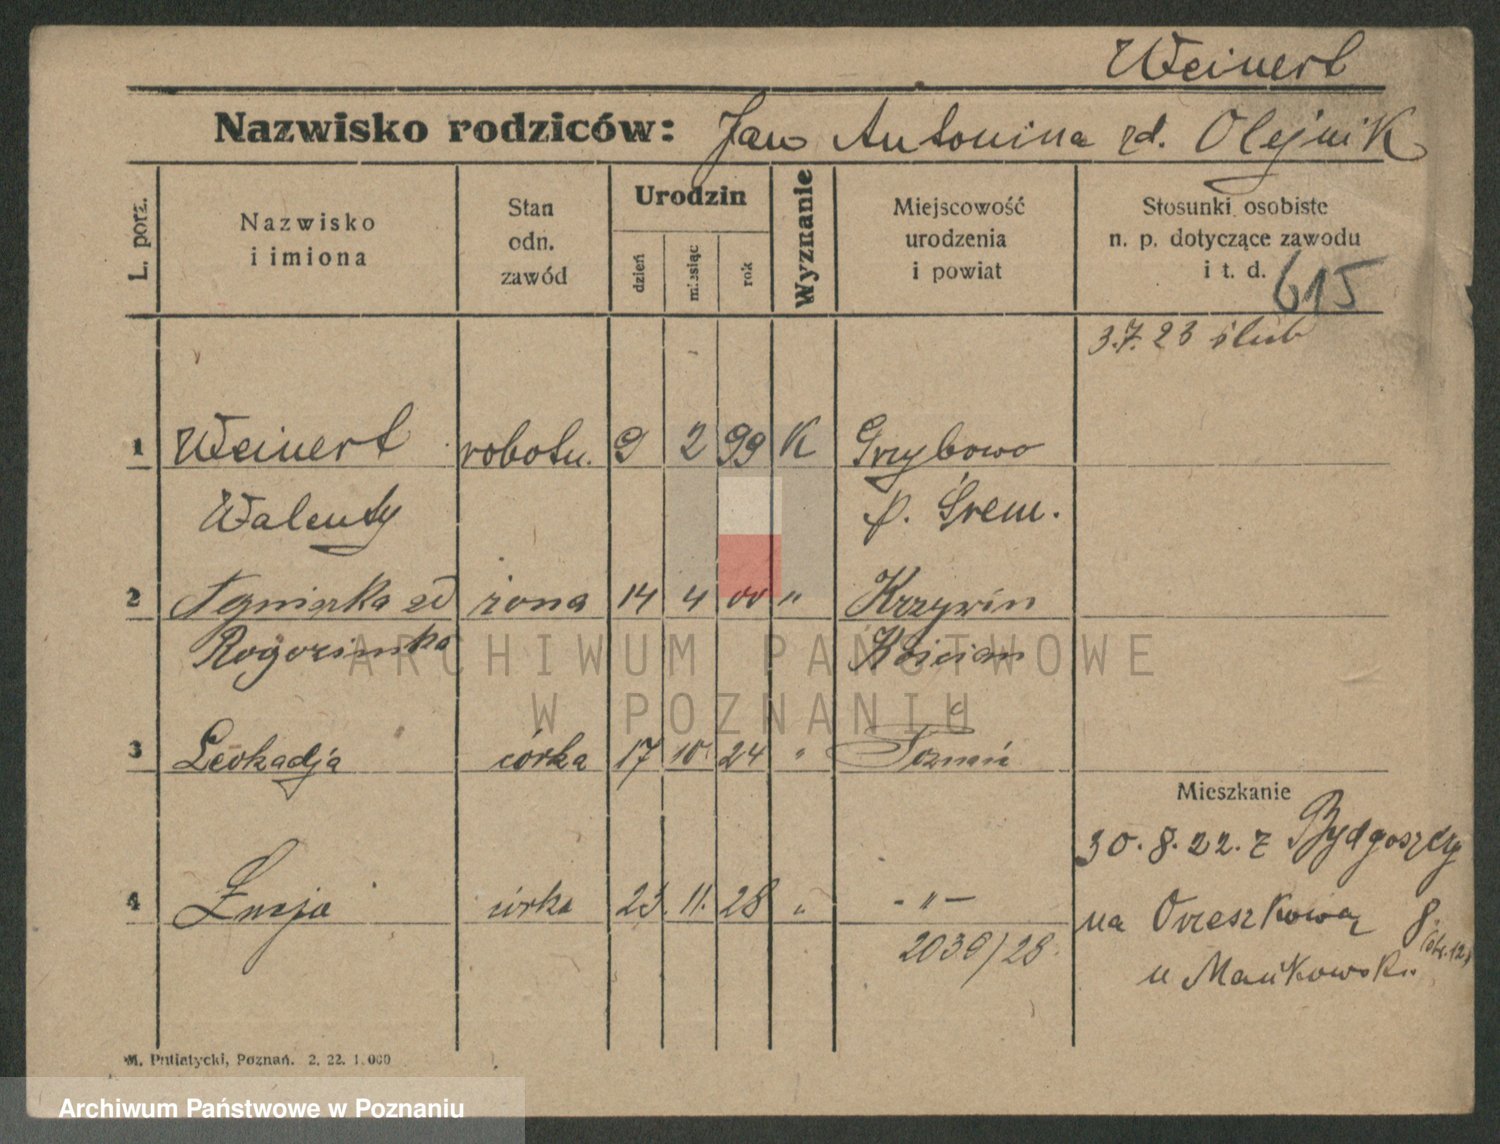 Weinert
Nazwisko rodziców: Jan Antonina zd. Olejnik
L. porz.
Nazwisko
i imiona
Stan
odn.
zawód
Urodzin
dzień
miesiąc
rok
Wyznanie
Miejscowość
urodzenia
i powiat
Stosunki osobiste
n. p. dotyczące zawodu
i t. d.
615
3.7.23 ślub
1 Weinert robotn. 9 2 99 K Grzybowo
Walenty p. Śrem.
2 Agnieszka zd żona 14 4 00 " Krzywin
Kościan
3 Leokadja córka 17 10 24 " Poznań
Mieszkanie
30.8.22. z Bydgoszczy
4 córka 23. 11. 28 " - " -
na Orzeszkowej 8.
2036/28.
u Mańkowski
M. Putiatycki, Poznań. 2. 22. 1.000
ARCHIWUM PAŃSTWOWE
W POZNANIU
Archiwum Państwowe w Poznaniu